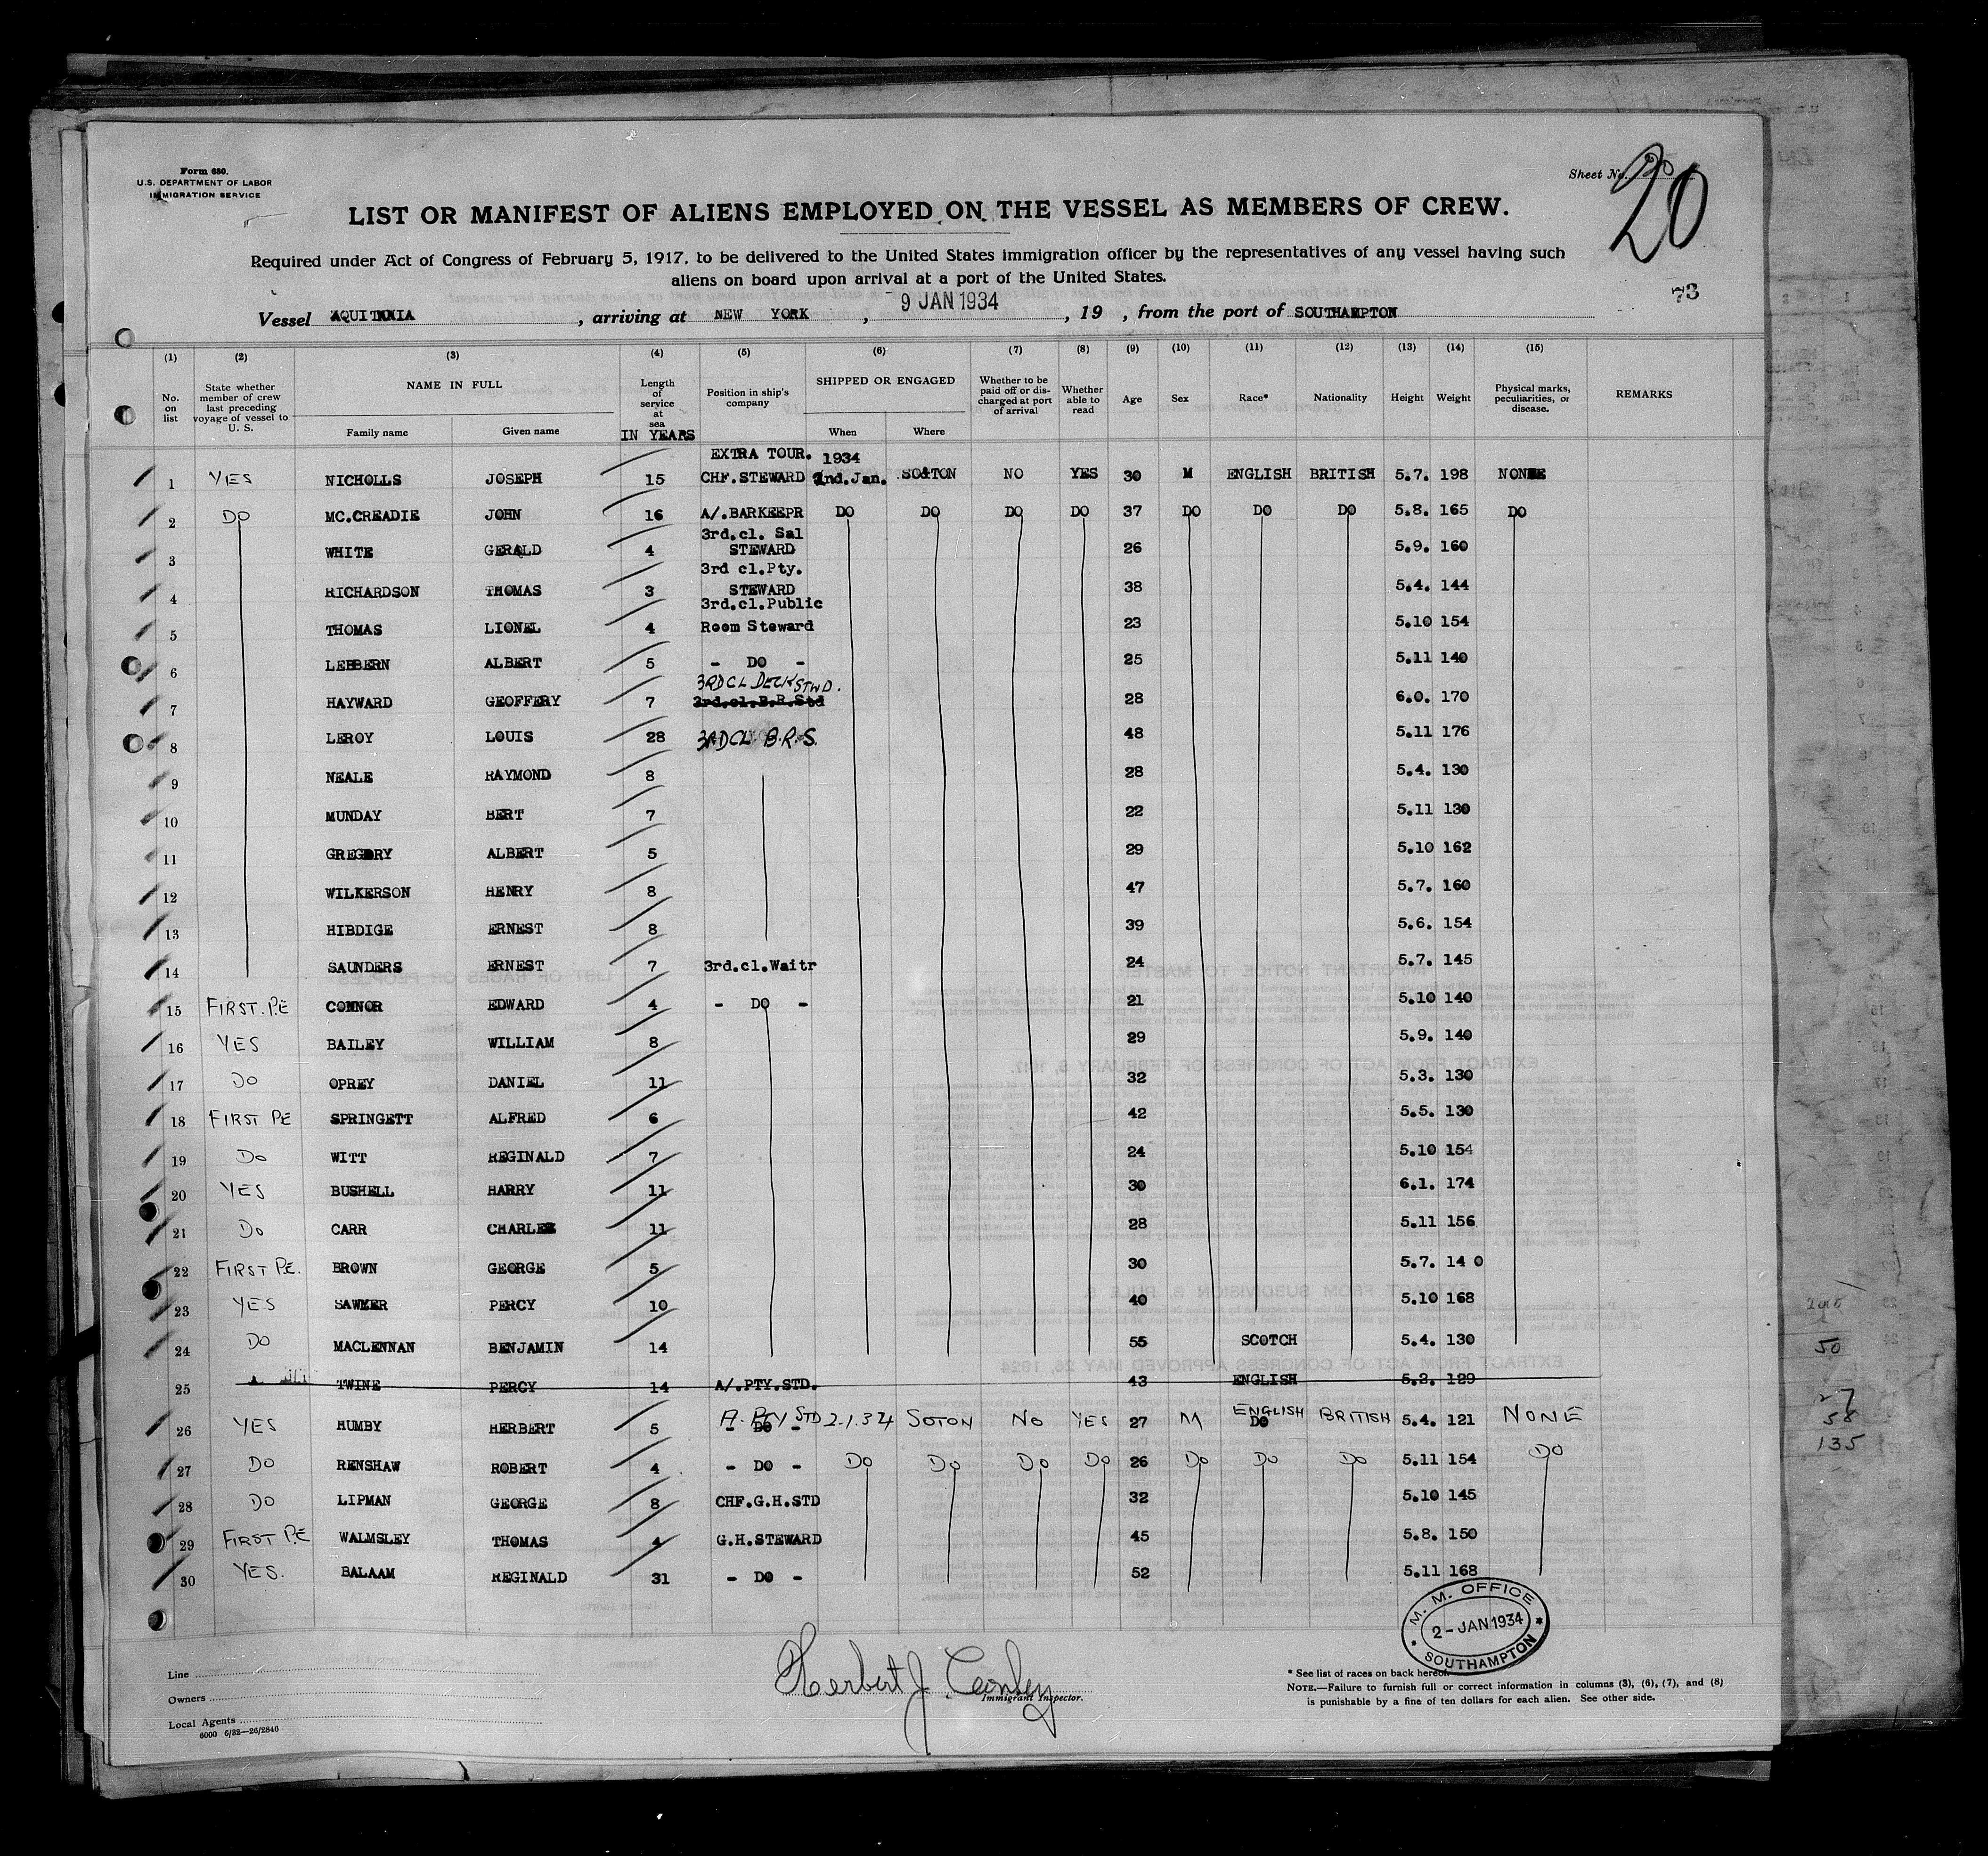 Form 680.
U.S. DEPARTMENT OF LABOR
IMMIGRATION SERVICE
Sheet No. 20
20
LIST OR MANIFEST OF ALIENS EMPLOYED ON THE VESSEL AS MEMBERS OF CREW.
Required under Act of Congress of February 5, 1917, to be delivered to the United States immigration officer by the representatives of any vessel having such
aliens on board upon arrival at a port of the United States.
73
Vessel AQUITANIA, arriving at NEW YORK, 9 JAN 1934, 19 , from the port of SOUTHAMPTON
(1) (2) (3) (4) (5) (6) (7) (8) (9) (10) (11) (12) (13) (14) (15)
No. on list State whether member of crew last preceding voyage of vessel to U. S. NAME IN FULL Family name Given name Length of service at sea IN YEARS Position in ship's company SHIPPED OR ENGAGED When Where Whether to be paid off or discharged at port of arrival Whether able to read Age Sex Race* Nationality Height Weight Physical marks, peculiarities, or disease. REMARKS
EXTRA TOUR. 1934
1 YES NICHOLLS JOSEPH 15 CHF.STEWARD 2nd.Jan. SOTON NO YES 30 M ENGLISH BRITISH 5.7. 198 NONE
2 DO MC.CREADIE JOHN 16 A/.BARKEEPR DO DO DO DO 37 DO DO DO 5.8. 165 DO
3rd.cl. Sal
3 WHITE GERALD 4 STEWARD 26 5.9. 160
3rd cl.Pty.
4 RICHARDSON THOMAS 3 STEWARD 38 5.4. 144
3rd.cl.Public
5 THOMAS LIONEL 4 Room Steward 23 5.10 154
6 LEBBERN ALBERT 5 - DO - 25 5.11 140
3RD CL DECK STWD.
7 HAYWARD GEOFFERY 7 3rd.cl.B.R.Std 28 6.0. 170
8 LEROY LOUIS 28 3RD CL. B.R.S. 48 5.11 176
9 NEALE RAYMOND 8 28 5.4. 130
10 MUNDAY BERT 7 22 5.11 130
11 GREGORY ALBERT 5 29 5.10 162
12 WILKERSON HENRY 8 47 5.7. 160
13 HIBDIGE ERNEST 8 39 5.6. 154
14 SAUNDERS ERNEST 7 3rd.cl.Waitr 24 5.7. 145
15 FIRST. P.E CONNOR EDWARD 4 - DO - 21 5.10 140
16 YES BAILEY WILLIAM 8 29 5.9. 140
17 DO OPREY DANIEL 11 32 5.3. 130
18 FIRST PE SPRINGETT ALFRED 6 42 5.5. 130
19 DO WITT REGINALD 7 24 5.10 154
20 YES BUSHELL HARRY 11 30 6.1. 174
21 DO CARR CHARLES 11 28 5.11 156
22 FIRST P.E. BROWN GEORGE 5 30 5.7. 14 0
23 YES SAWYER PERCY 10 40 5.10 168
24 DO MACLENNAN BENJAMIN 14 55 SCOTCH 5.4. 130
25 TWINE PERCY 14 A/.PTY.STD. 43 ENGLISH 5.2. 129
26 YES HUMBY HERBERT 5 A. PTY STD - DO - 2.1.34 SOTON NO YES 27 M ENGLISH DO BRITISH 5.4. 121 NONE
27 DO RENSHAW ROBERT 4 - DO - DO DO DO DO 26 DO DO DO 5.11 154 DO
28 DO LIPMAN GEORGE 8 CHF.G.H.STD 32 5.10 145
29 FIRST P.E WALMSLEY THOMAS 4 G.H.STEWARD 45 5.8. 150
30 YES. BALAAM REGINALD 31 - DO - 52 5.11 168
50
58
135
M. M. OFFICE
2 - JAN 1934
SOUTHAMPTON
Line
Owners
Local Agents
6000 6/32—26/2846
Herbert J.
Immigrant Inspector.
* See list of races on back hereof.
NOTE.—Failure to furnish full or correct information in columns (3), (6), (7), and (8)
is punishable by a fine of ten dollars for each alien. See other side.